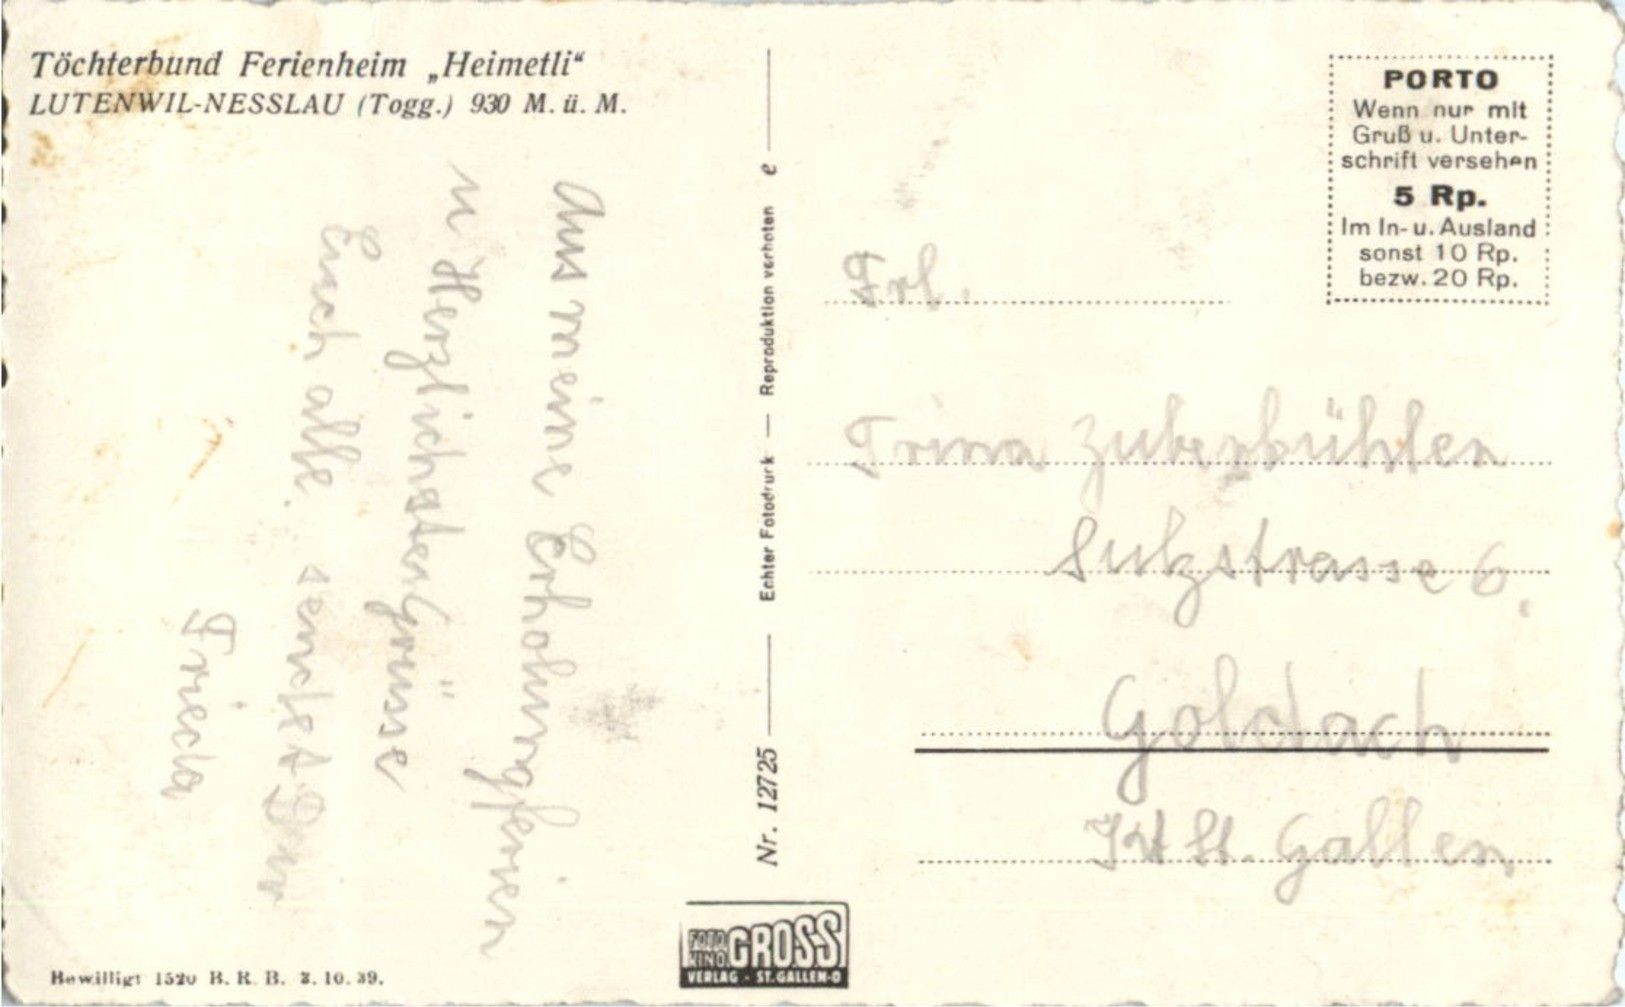 Töchterbund Ferienheim „Heimetli“
LUTENWIL-NESSLAU (Togg.) 930 M. ü. M.
Aus meine Erholungsferien
u Herzlichsten Grüsse
Euch alle. sendet Dur
Frieda
Nr. 12725 — Echter Fotodruck — Reproduktion verboten e
PORTO
Wenn nur mit
Gruß u. Unter-
schrift versehen
5 Rp.
Im In- u. Ausland
sonst 10 Rp.
bezw. 20 Rp.
Frl.
Trina Zuberbühler
Sulzstrasse 6.
Goldach
Kt St. Gallen
FOTO
KINO
GROSS
VERLAG - ST. GALLEN-O
Bewilligt 1520 B. R. B. 3. 10. 39.